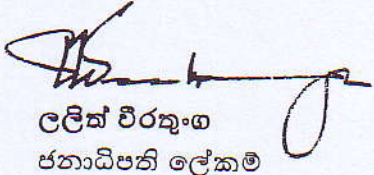 ලලිත් වීරතුංග
ජනාධිපති ලේකම්